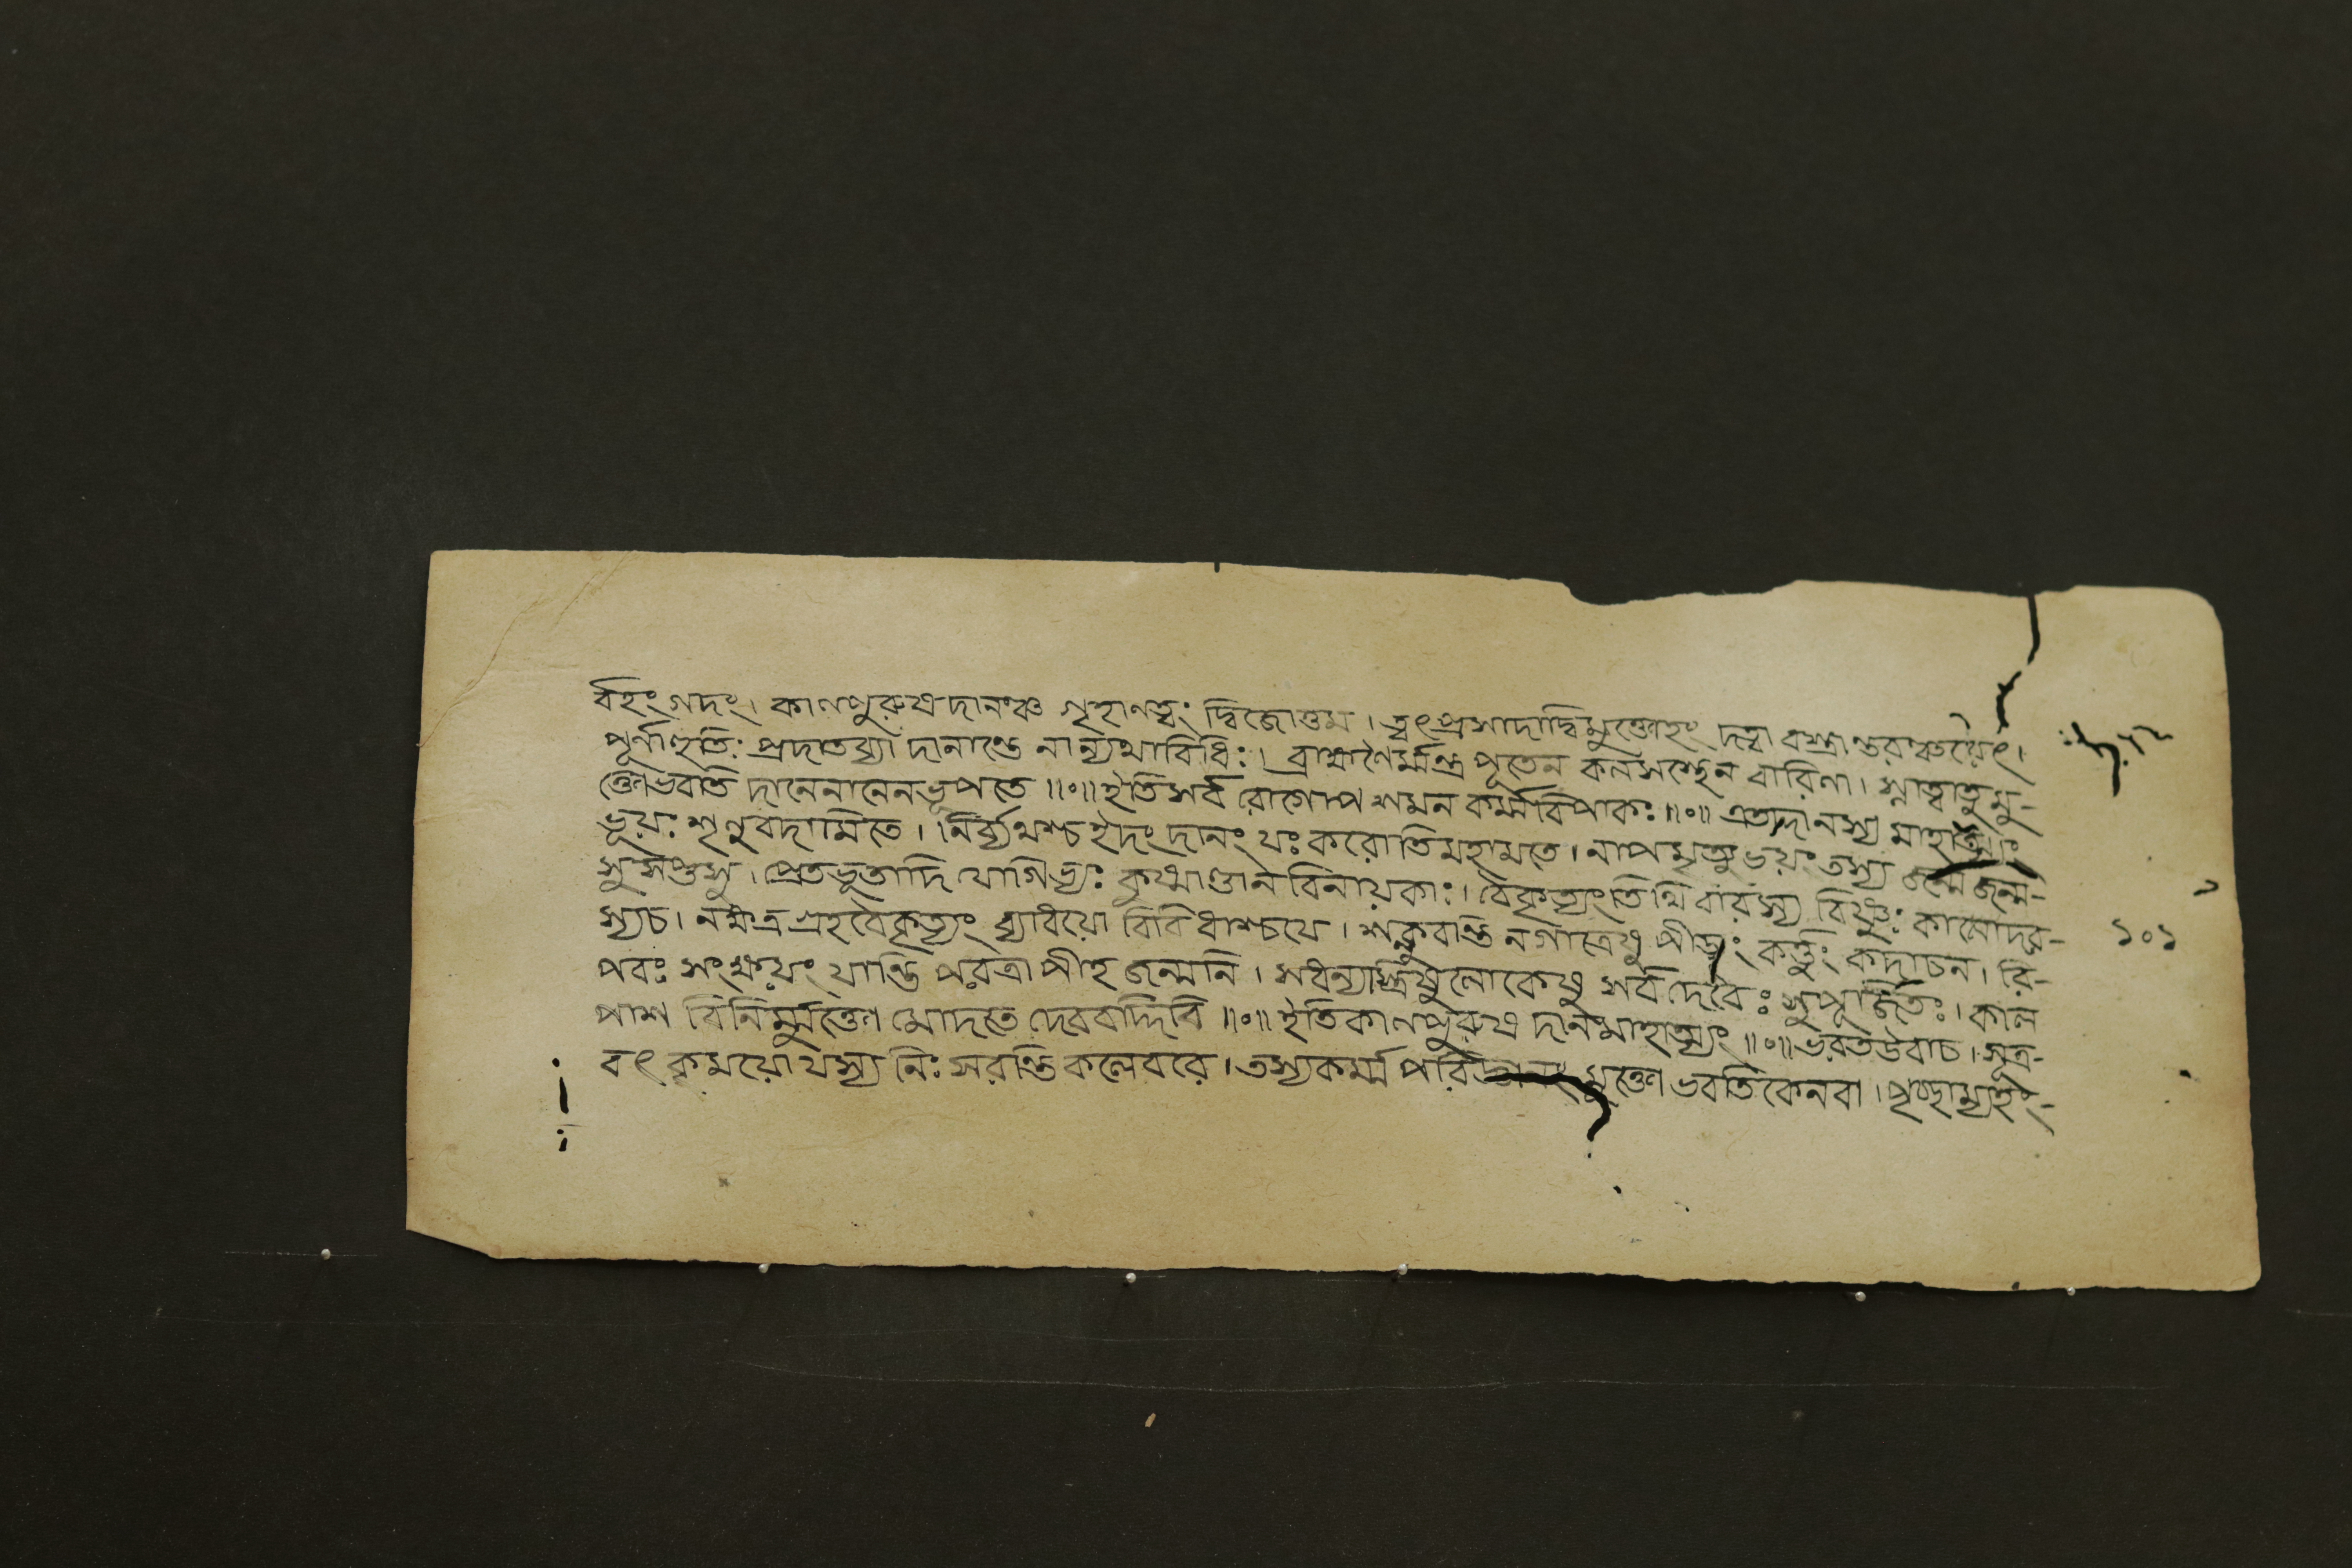 র্বহং গদং। কালপুরুষদানঞ্চ গৃহাণত্বং দ্বিজোত্তম। ত্বৎপ্রসাদাদ্বিমুক্তোহং দত্বা বস্ত্রান্তরঞ্চয়েৎ।
পূর্নাহুতিঃ প্রদাতব্যা দানান্তে নান্যথাবিধিঃ। ব্রাহ্মণৈর্ম্মন্ত্র পূতেন কলসস্থেন বারিণা। স্নাত্বাতু মু-
ক্তোভবতি দানেনানেনভূপতে॥০॥ইতিসর্ব রোগোপশমন কর্ম্মবিপাকঃ॥০॥ এতদ্দানস্য মাহাত্ম্যং
ভূয়ঃ শৃণুবদামিতে। নির্ব্যথশ্চ ইদং দানং যঃ করোতিমহামতে। নাপমৃত্যুভয়ং তস্য জন্মজন্ম-
সু সপ্তসু। প্রেতভূতাদি যোগিভ্যঃ কুষ্মাণ্ডান বিনায়কাঃ। বৈকৃত্যংতিথি বারস্য বিষ্ণুঃ কালোদর-
স্যচ। নক্ষত্র গ্রহবৈকৃত্যং ব্যাধয়ো বিবিধাশ্চযে। শক্নুবন্তি নগাত্রেষু পীড়াং কর্ত্তুং কদাচন। রি-
পবঃ সংক্ষয়ং যান্তি পরত্রাপীহ জন্মনি। সধন্যস্ত্রিষুলোকেষু সর্বদেবৈঃ সুপূজিতঃ। কাল
পাশ বিনির্ম্মুক্তো মোদতে দেববদ্দিবি॥০॥ইতিকালপুরুষ দানমাহাত্ম্যং॥০॥ভরতউবাচ। সূত্র-
বৎ কৃময়োযস্য নিঃসরন্তি কলেবরে। তস্যকর্ম্ম পরিজ্ঞানং মুক্তো ভবতিকেনবা। পৃচ্ছাম্যহং-
১০১